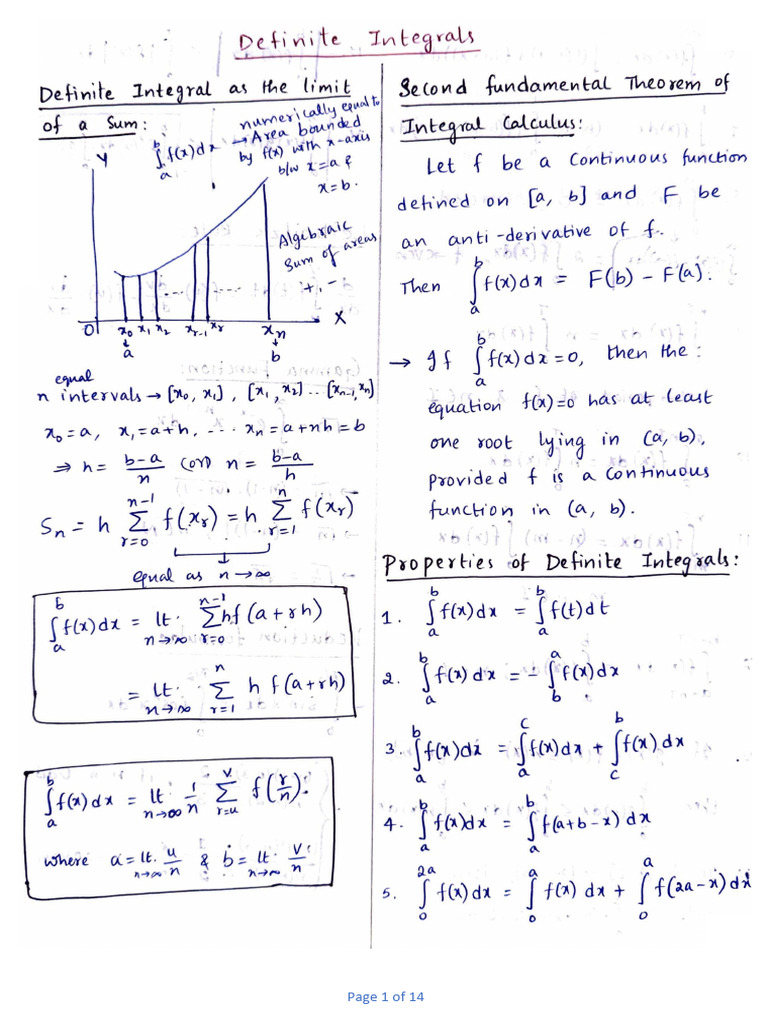 Definite Integrals
Definite Integral as the limit
of a Sum:
Y
∫_a^b f(x)dx → numerically equal to
Area bounded
by f(x) with x-axis
b/w x=a &
x=b.
Algebraic
Sum of areas
+, -
O x₀ x₁ x₂ ... x_{r-1} x_r x_n X
a b
equal
n intervals → [x₀, x₁], [x₁, x₂] ... [x_{n-1}, x_n]
x₀=a, x₁=a+h, ... x_n=a+nh=b
⇒ h= (b-a)/n (or) n= (b-a)/h
S_n = h ∑_{r=0}^{n-1} f(x_r) = h ∑_{r=1}^{n} f(x_r)
equal as n→∞
∫_a^b f(x)dx = lt._{n→∞} ∑_{r=0}^{n-1} hf(a+rh)
= lt._{n→∞} ∑_{r=1}^{n} h f(a+rh)
∫_a^b f(x)dx = lt._{n→∞} 1/n ∑_{r=u}^{v} f(r/n).
where a=lt._{n→∞} u/n & b=lt._{n→∞} v/n
Second fundamental Theorem of
Integral Calculus:
Let f be a Continuous function
defined on [a, b] and F be
an anti-derivative of f.
Then ∫_a^b f(x)dx = F(b) - F(a).
→ If ∫_a^b f(x)dx=0, then the
equation f(x)=0 has at least
one root lying in (a, b),
provided f is a continuous
function in (a, b).
Properties of Definite Integrals:
1. ∫_a^b f(x)dx = ∫_a^b f(t)dt
2. ∫_a^b f(x)dx = -∫_b^a f(x)dx
3. ∫_a^b f(x)dx = ∫_a^c f(x)dx + ∫_c^b f(x)dx
4. ∫_a^b f(x)dx = ∫_a^b f(a+b-x)dx
5. ∫_0^{2a} f(x)dx = ∫_0^a f(x)dx + ∫_0^a f(2a-x)dx
Page 1 of 14